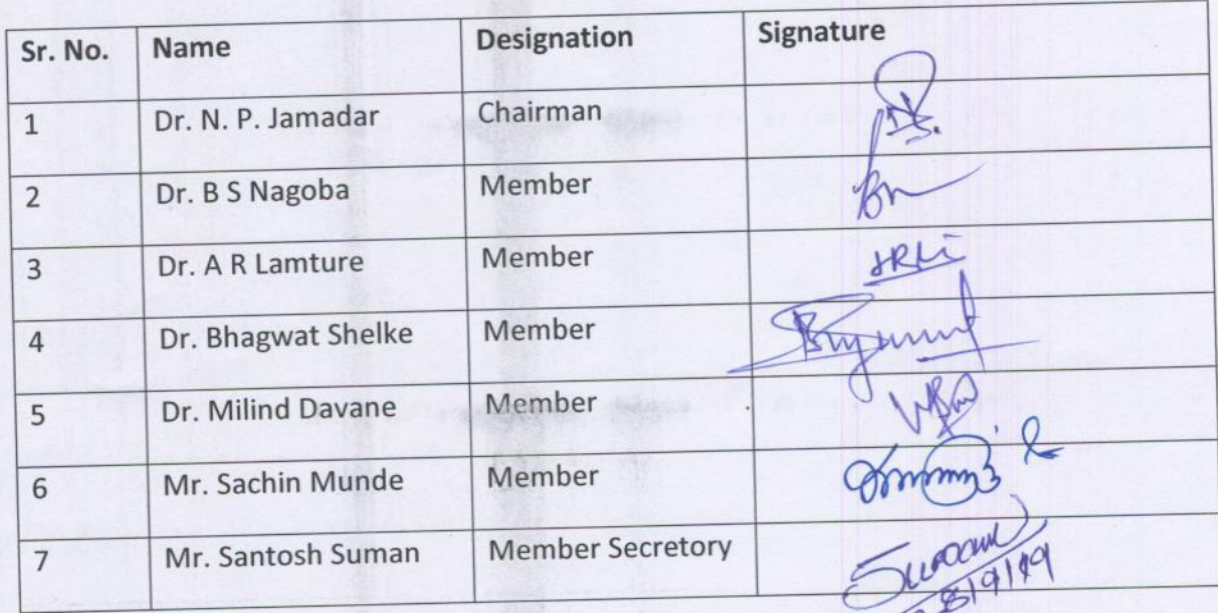 Sr. No. Name Designation Signature
1 Dr. N. P. Jamadar Chairman
2 Dr. B S Nagoba Member
3 Dr. A R Lamture Member
4 Dr. Bhagwat Shelke Member
5 Dr. Milind Davane Member
6 Mr. Sachin Munde Member
7 Mr. Santosh Suman Member Secretory